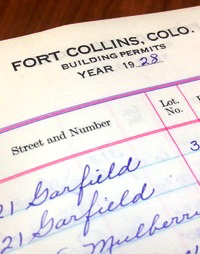 FORT COLLINS, COLO.
BUILDING PERMITS
YEAR 1928
Street and Number
Lot. No.
21 Garfield
3
21 Garfield
Mulberry